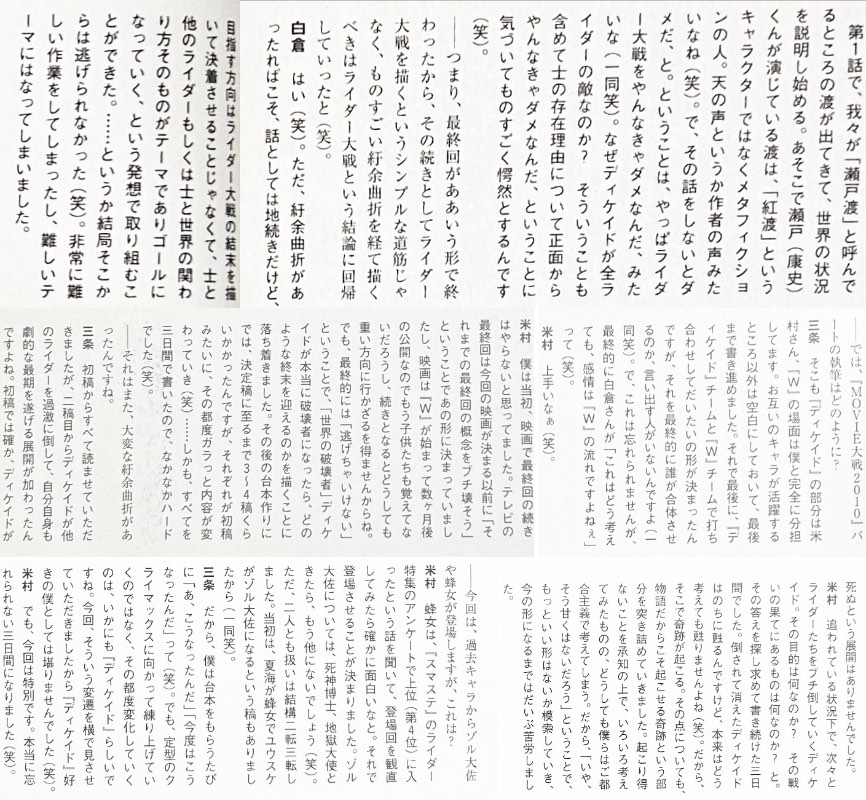 第1話で、我々が「瀬戸渡」と呼んで
るところの渡が出てきて、世界の状況
を説明し始める。あそこで瀬戸（康史）
くんが演じている渡は、「紅渡」という
キャラクターではなくメタフィクショ
ンの人。天の声というか作者の声みた
いなね（笑）。で、その話をしないとダ
メだ、と。ということは、やっぱライダ
ー大戦をやんなきゃダメなんだ、みた
いな（一同笑）。なぜディケイドが全ラ
イダーの敵なのか？　そういうことも
含めて士の存在理由について正面から
やんなきゃダメなんだ、ということに
気づいてものすごく愕然とするんです
（笑）。
――つまり、最終回がああいう形で終
わったから、その続きとしてライダー
大戦を描くというシンプルな道筋じゃ
なく、ものすごい紆余曲折を経て描く
べきはライダー大戦という結論に回帰
していったと（笑）。
白倉　はい（笑）。ただ、紆余曲折があ
ったればこそ、話としては地続きだけど、
目指す方向はライダー大戦の結末を描
いて決着させることじゃなくて、士と
他のライダーもしくは士と世界の関わ
り方そのものがテーマでありゴールに
なっていく、という発想で取り組むこ
とができた。……というか結局そこか
らは逃げられなかった（笑）。非常に難
しい作業をしてしまったし、難しいテ
ーマにはなってしまいました。
――では、『MOVIE大戦2010』パ
ートの執筆はどのように？
三条　そこも『ディケイド』の部分は米
村さん、『W』の場面は僕と完全に分担
してます。お互いのキャラが活躍する
ところ以外は空白にしておいて、最後
まで書き進めました。それで最後に、『デ
ィケイド』チームと『W』チームで打ち
合わせしてだいたいの形が決まったん
ですが、それを最終的に誰が合体させ
るのか、言い出す人がいないんですよ（一
同笑）。で、これは忘れられませんが、
最終的に白倉さんが「これはどう考え
ても、感情は『W』の流れですよねぇ」
って（笑）。
米村　上手いなぁ（笑）。
米村　僕は当初、映画で最終回の続き
はやらないと思ってました。テレビの
最終回は今回の映画が決まる以前に「そ
れまでの最終回の概念をブチ壊そう」
ということであの形に決まっていまし
たし、映画は『W』が始まって数ヶ月後
の公開なのでもう子供たちも覚えてな
いだろうし、続きとなるとどうしても
重い方向に行かざるを得ませんからね。
でも、最終的には「逃げちゃいけない」
ということで、「世界の破壊者」ディケ
イドが本当に破壊者になったら、どの
ような終末を迎えるのかを描くことに
落ち着きました。その後の台本作りに
では、決定稿に至るまで3～4稿くら
いかかったんですが、それぞれが初稿
みたいに、その都度ガラっと内容が変
わっていき（笑）……しかも、すべてを
三日間で書いたので、なかなかハード
でした（笑）。
――それはまた、大変な紆余曲折があ
ったんですね。
三条　初稿からすべて読ませていただ
きましたが、二稿目からディケイドが他
のライダーを過激に倒して、自分自身も
劇的な最期を遂げる展開が加わったん
ですよね。初稿では確か、ディケイドが
死ぬという展開はありませんでした。
米村　追われている状況下で、次々と
ライダーたちをブチ倒していくディケ
イド。その目的は何なのか？　その戦
いの果てにあるものは何なのか？　と。
その答えを探し求めて書き続けた三日
間でした。倒されて消えたディケイド
はのちに甦るんですけど、本来はどう
考えても甦りませんよね（笑）。だから、
そこで奇跡が起こる。その点についても、
物語だからこそ起こせる奇跡という部
分を突き詰めていきました。起こり得
ないことを承知の上で、いろいろ考え
てみたものの、どうしても僕らはご都
合主義で考えてしまう。だから、「いや、
そう甘くはないだろう」ということで、
もっといい形はないか模索していき、
今の形になるまではだいぶ苦労しまし
た。
――今回は、過去キャラからゾル大佐
や蜂女が登場しますが、これは？
米村　蜂女は、『スマステ』のライダー
特集のアンケートで上位（第4位）に入
ったという話を聞いて、登場回を観直
してみたら確かに面白いなと。それで
登場させることが決まりました。ゾル
大佐については、死神博士、地獄大使と
きたら、もう他にないでしょう（笑）。
ただ、二人とも扱いは結構二転三転し
ました。当初は、夏海が蜂女でユウスケ
がゾル大佐になるという稿もありまし
たから（一同笑）。
三条　だから、僕は台本をもらうたび
に「あ、こうなったんだ」「今度はこう
なったんだ」って（笑）。でも、定型のク
ライマックスに向かって練り上げてい
くのではなく、その都度変化していく
のは、いかにも『ディケイド』らしいで
すね。今回、そういう変遷を横で見させ
ていただきましたから『ディケイド』好
きの僕としては堪りませんでした（笑）。
米村　でも、今回は特別です。本当に忘
れられない三日間になりました（笑）。